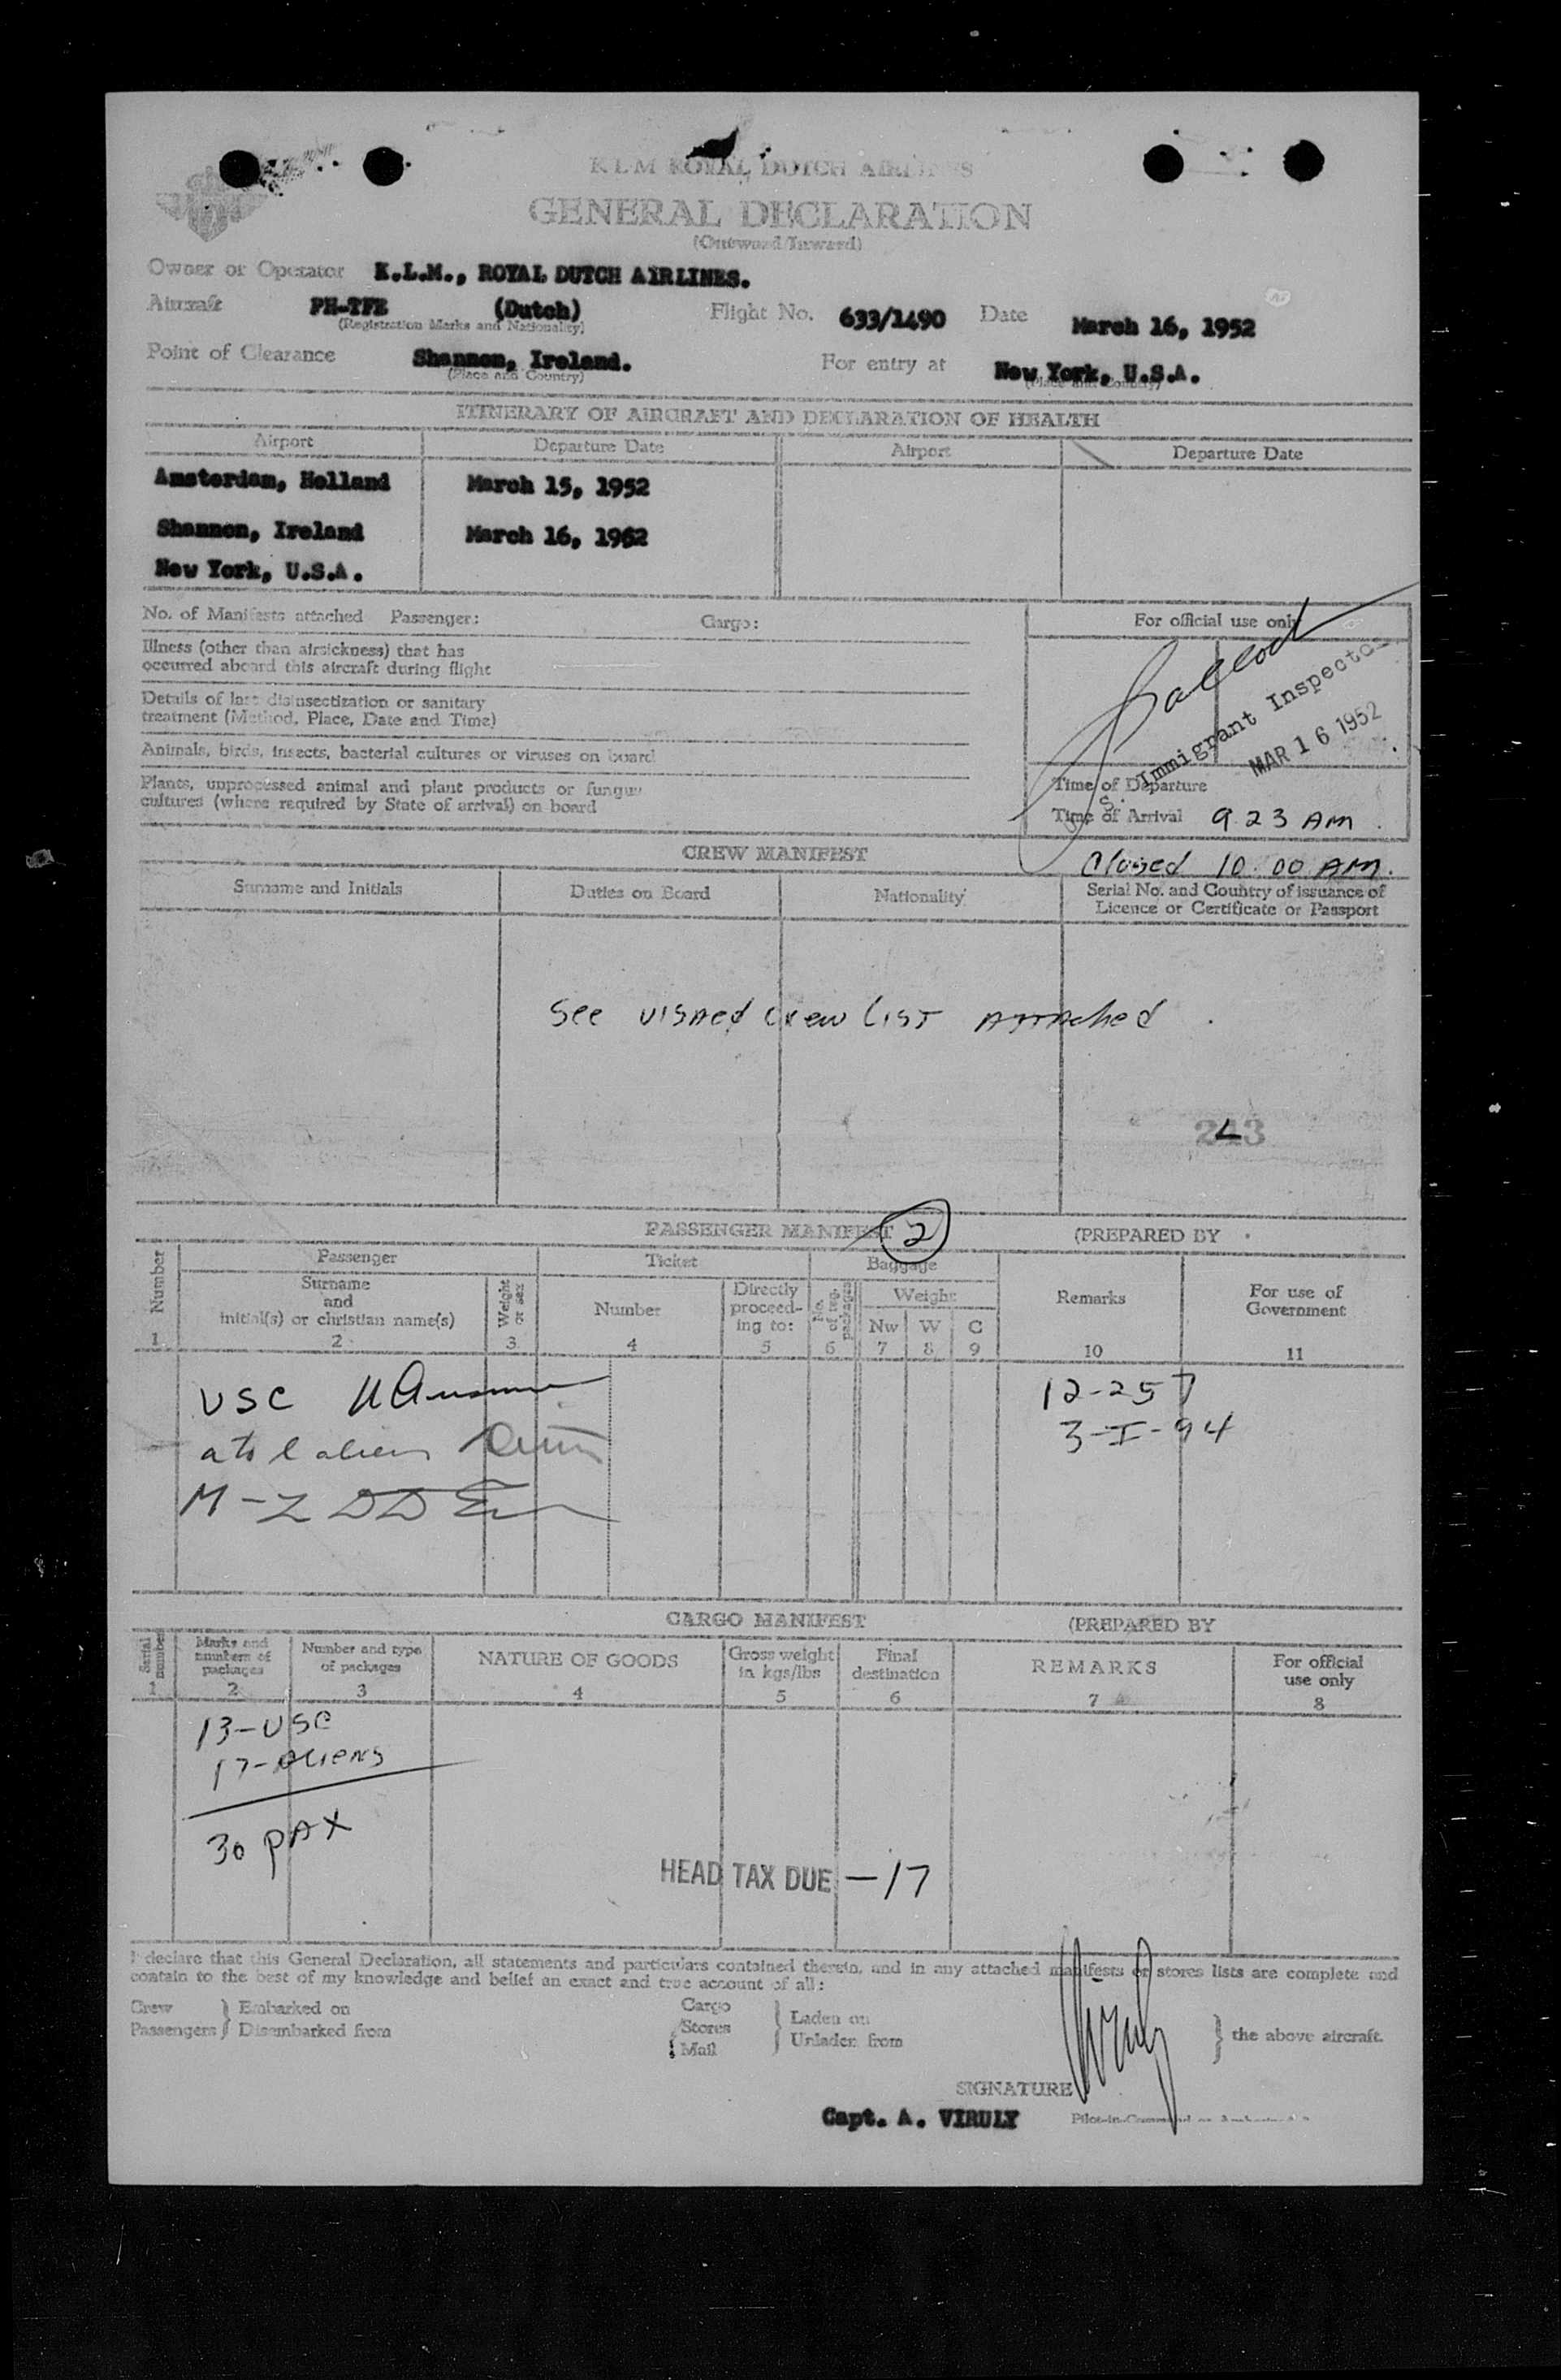 K L M ROYAL DUTCH AIRLINES
GENERAL DECLARATION
(Outward/Inward)
Owner or Operator K.L.M., ROYAL DUTCH AIRLINES.
Aircraft PH-TFE (Dutch) Flight No. 633/1490 Date March 16, 1952
(Registration Marks and Nationality)
Point of Clearance Shannon, Ireland. For entry at New York, U.S.A.
(Place and Country) (Place and Country)
ITINERARY OF AIRCRAFT AND DECLARATION OF HEALTH
Airport Departure Date Airport Departure Date
Amsterdam, Holland March 15, 1952
Shannon, Ireland March 16, 1952
New York, U.S.A.
No. of Manifests attached Passenger: Cargo: For official use only
Illness (other than airsickness) that has
occurred aboard this aircraft during flight
Details of last disinsectization or sanitary
treatment (Method, Place, Date and Time)
Immigrant Inspector
MAR 16 1952
Animals, birds, insects, bacterial cultures or viruses on board
Plants, unprocessed animal and plant products or fungus
cultures (where required by State of arrival) on board
Time of Departure
Time of Arrival 9 23 AM
Closed 10:00 AM.
CREW MANIFEST
Surname and Initials Duties on Board Nationality Serial No. and Country of issuance of
Licence or Certificate or Passport
See visaed crew list attached.
PASSENGER MANIFEST 2 (PREPARED BY
Number Passenger Ticket Baggage Remarks For use of
Government
Surname
and
initial(s) or christian name(s)
Weight or sex Number Directly
proceed-
ing to:
No. of reg. packages Weight
Nw W C
1 2 3 4 5 6 7 8 9 10 11
USC 12-257
3-I-94
M-Z DD
CARGO MANIFEST (PREPARED BY
Serial number Marks and
numbers of
packages
Number and type
of packages
NATURE OF GOODS Gross weight
in kgs/lbs
Final
destination
REMARKS For official
use only
1 2 3 4 5 6 7 8
13-USC
17-Aliens
30 PAX
HEAD TAX DUE -17
I declare that this General Declaration, all statements and particulars contained therein, and in any attached manifests or stores lists are complete and
contain to the best of my knowledge and belief an exact and true account of all:
Crew Embarked on Cargo Laden on
Passengers Disembarked from Stores Unladen from the above aircraft.
Mail
SIGNATURE Viruly
Capt. A. VIRULY Pilot-in-Command or